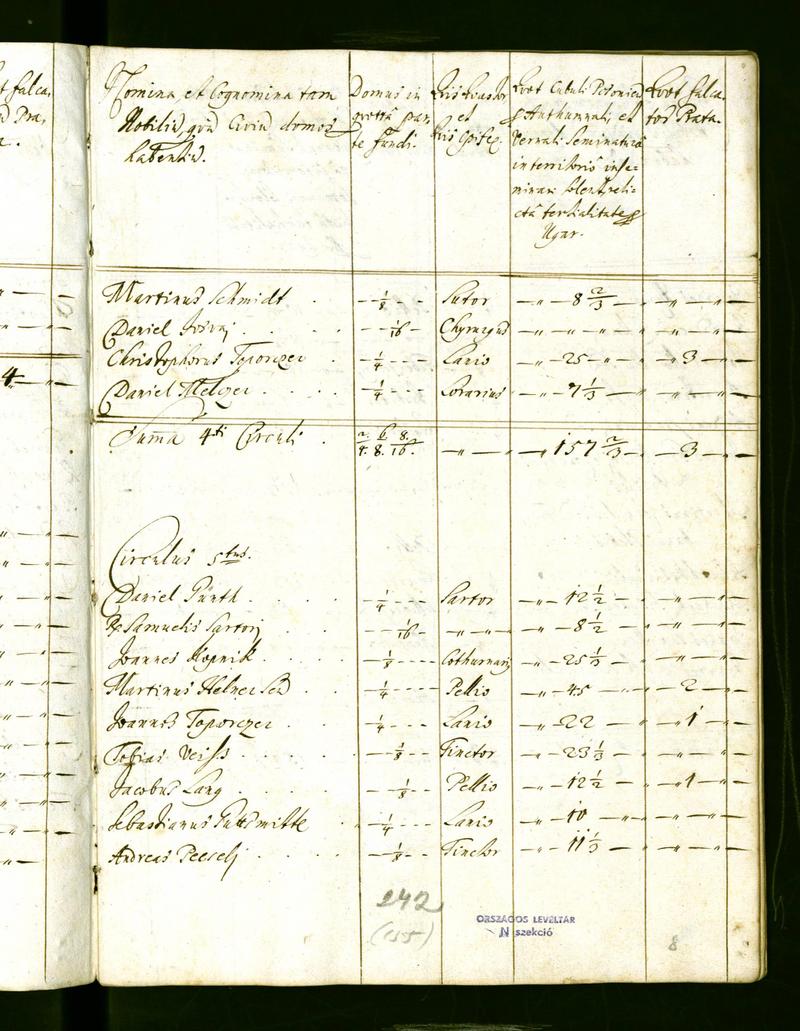 Nomina, et Cognomina tam
Nobiliũ, quã Civiũ domos
habentiũ.
Domus in
te fundi.
et
Kris Opifex.
Kvot Cubuli Posoniens
Autumnali, et
Vernali Seminatura
in territorio inse-
minari solent, reli-
cta tertialitate
Ugar.
Kvot falca-
tor Prata.
Martinus Schmidt - 1/8 - - Sutor - „ - 8 2/3 - „ - „ -
Daniel - - 1/16 Chyrurgus - „ - „ - „ - „ -
Christophorus Toporczer - 1/4 - - Lanio - „ - 25 - „ - 3 -
Daniel Melczer - 1/4 - - Lorarius - „ - 7 1/3 - „ - „ -
Suma 4ti Circuli 2/4. 6/8. 8/16. - „ - „ - 157 2/3 - 3 -
Circulus 5tus.
Daniel Günth 1/4 - - - Sartor - „ - 12 1/2 - „ - „ -
Samuelis Sartorj - - 1/16 - - „ - „ - „ - 8 1/2 - „ - „ -
Joannes Kopnik 1/8 - - - Cothurnarius - „ - 25 1/3 - „ - „ -
Martinus - 1/4 - - Pellio - „ - 45 - „ - 2 -
Joannes Toporczer - 1/4 - - Lanio - „ - 22 - „ - 1 -
Tobias Veiss - - 1/8 - Tinctor - „ - 23 1/3 - „ - „ -
Jacobus Lang - - 1/8 - Pellio - „ - 12 1/2 - „ - 1 -
Sebastianus - 1/4 - - Lanio - „ - 10 - „ - „ -
Andreas - 1/8 - - Tinctor - „ - 11 1/3 - „ - „ -
242
(155)
ORSZÁGOS LEVÉLTÁR
N szekció
8